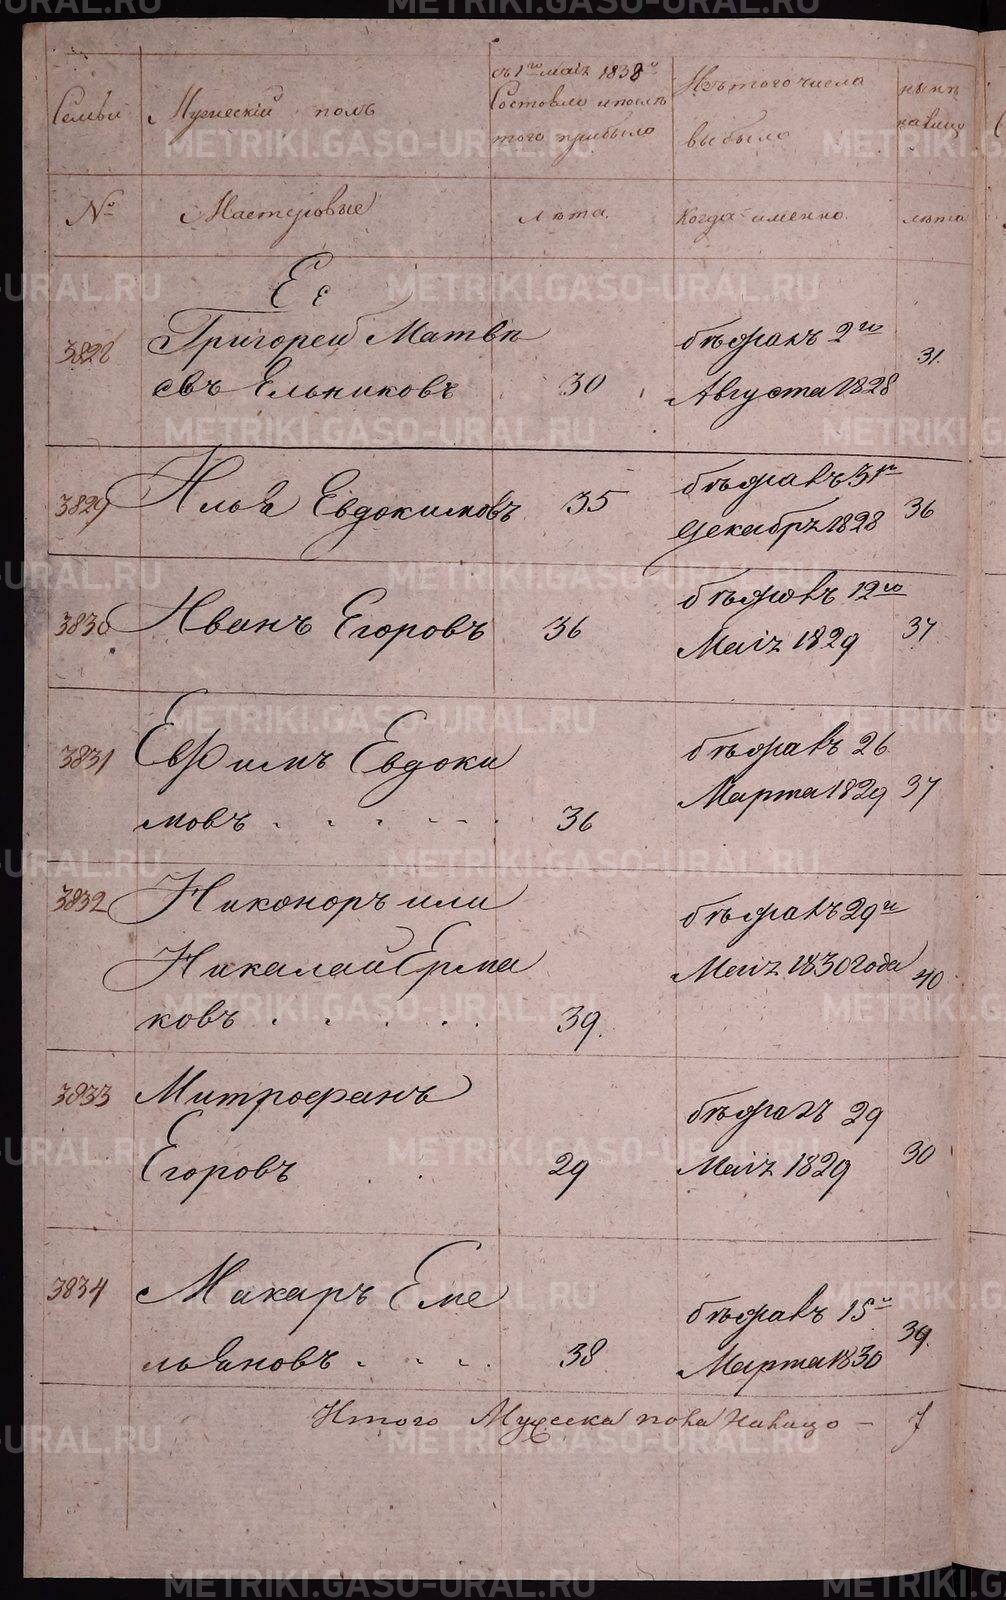 съ 1го маiя 1838го
Семьи Мужескiй полъ Состояло и после Изъ того числа нынѣ
того прибыло выбыло налицо
№ Мастеровые лѣта. Когда именно. лѣта
Ес
3828 Григорей Матвѣ бѣжалъ 2го
евъ Ельниковъ 30 Августа 1828 31.
3829 Илья Евдокимовъ 35 бѣжалъ 31го
Декабря 1828 36
3830 Иванъ Егоровъ 36 бѣжалъ 12го
Маiя 1829 37
3831 Ефимъ Евдоки бѣжалъ 26
мовъ . . . . . . 36 Марта 1829 37
3832 Никоноръ или бѣжалъ 29го
Николай Ерма Маiя 1830 года 40
ковъ . . . . . 39.
3833 Митрофанъ бѣжалъ 29
Егоровъ . . 29 Маiя 1829 30
3834 Макаръ Еме бѣжалъ 15го
льяновъ . . . . 38 Марта 1830 39.
Итого Мужеска пола налицо — 7
METRIKI.GASO-URAL.RU